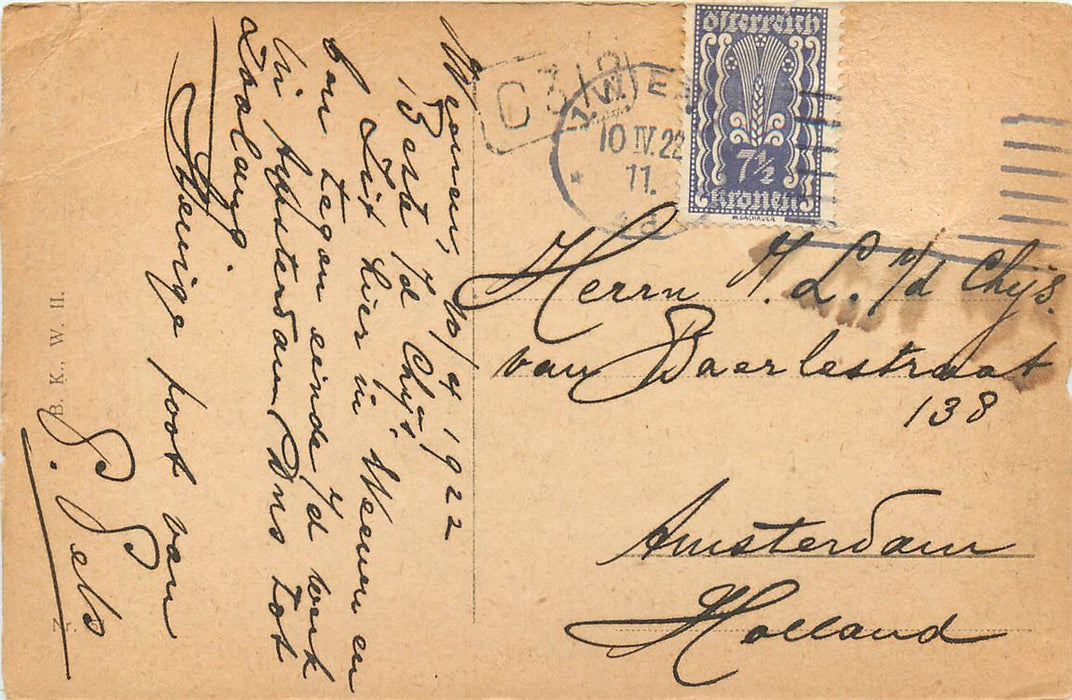 Weenen, 10/4 1922
Beste v/d Chijs.
Zit hier in Weenen en
ben tegen einde v/d week
in Amsterdam, Dus tot
Zoolang.
Stevige poot van
P. Pels
B. K., W. II.
C 3
WIEN
10 IV. 22
11.
Österreich
7½
Kronen
W.DACHAUER
Herrn H. L. v/d Chijs.
van Baerlestraat
138
Amsterdam
Holland